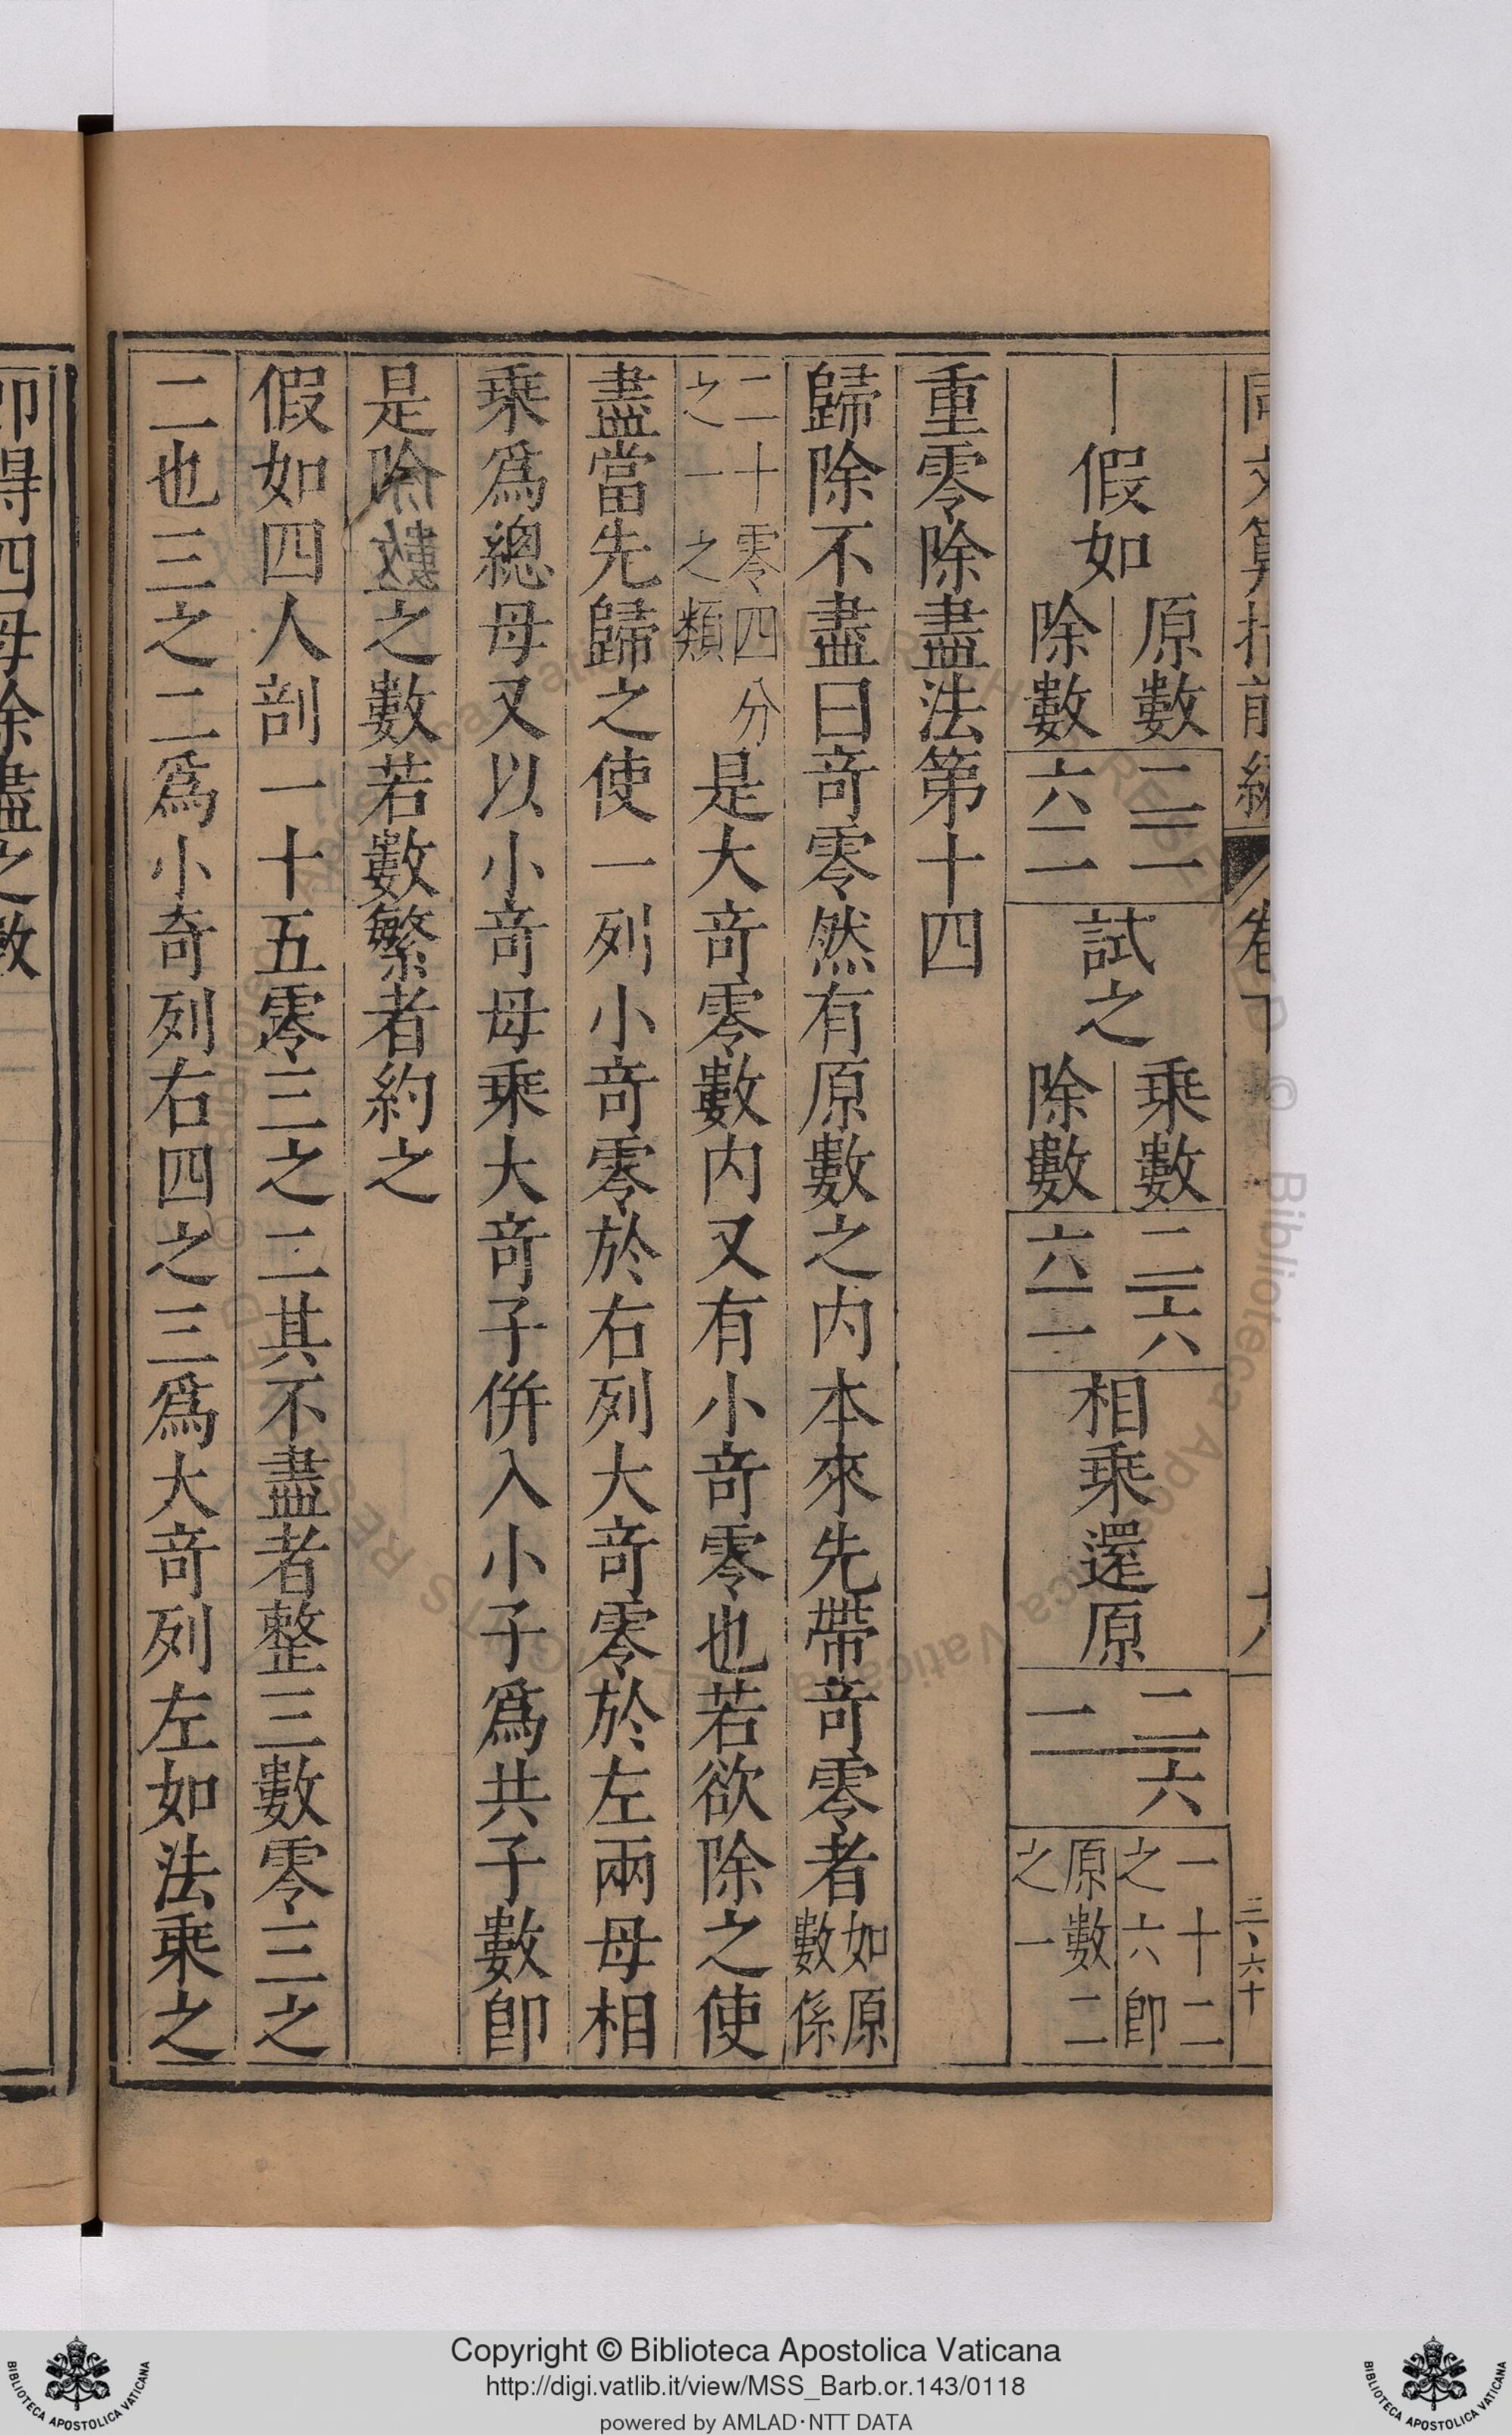 同文算指前編 卷下
假如
原數 二一
除數 六一
試之
乘數 二六
除數 六一
相乘還原
一二 六
一十二
之六即
原數二
之一
重零除盡法第十四
歸除不盡曰竒零然有原數之內本來先帶竒零者如原
數係
二十零四分
之一之類
是大竒零數內又有小竒零也若欲除之使
盡當先歸之使一列小竒零於右列大竒零於左兩母相
乘爲總母又以小竒母乘大竒子併入小子爲共子數即
是除數之數若數繁者約之
假如四人剖一十五零三之二其不盡者整三數零三之
二也三之二爲小奇列右四之三爲大竒列左如法乘之
即得四母除盡之數
三、六十
Copyright © Biblioteca Apostolica Vaticana
http://digi.vatlib.it/view/MSS_Barb.or.143/0118
powered by AMLAD·NTT DATA
BIBLIOTECA APOSTOLICA VATICANA
BIBLIOTECA APOSTOLICA VATICANA